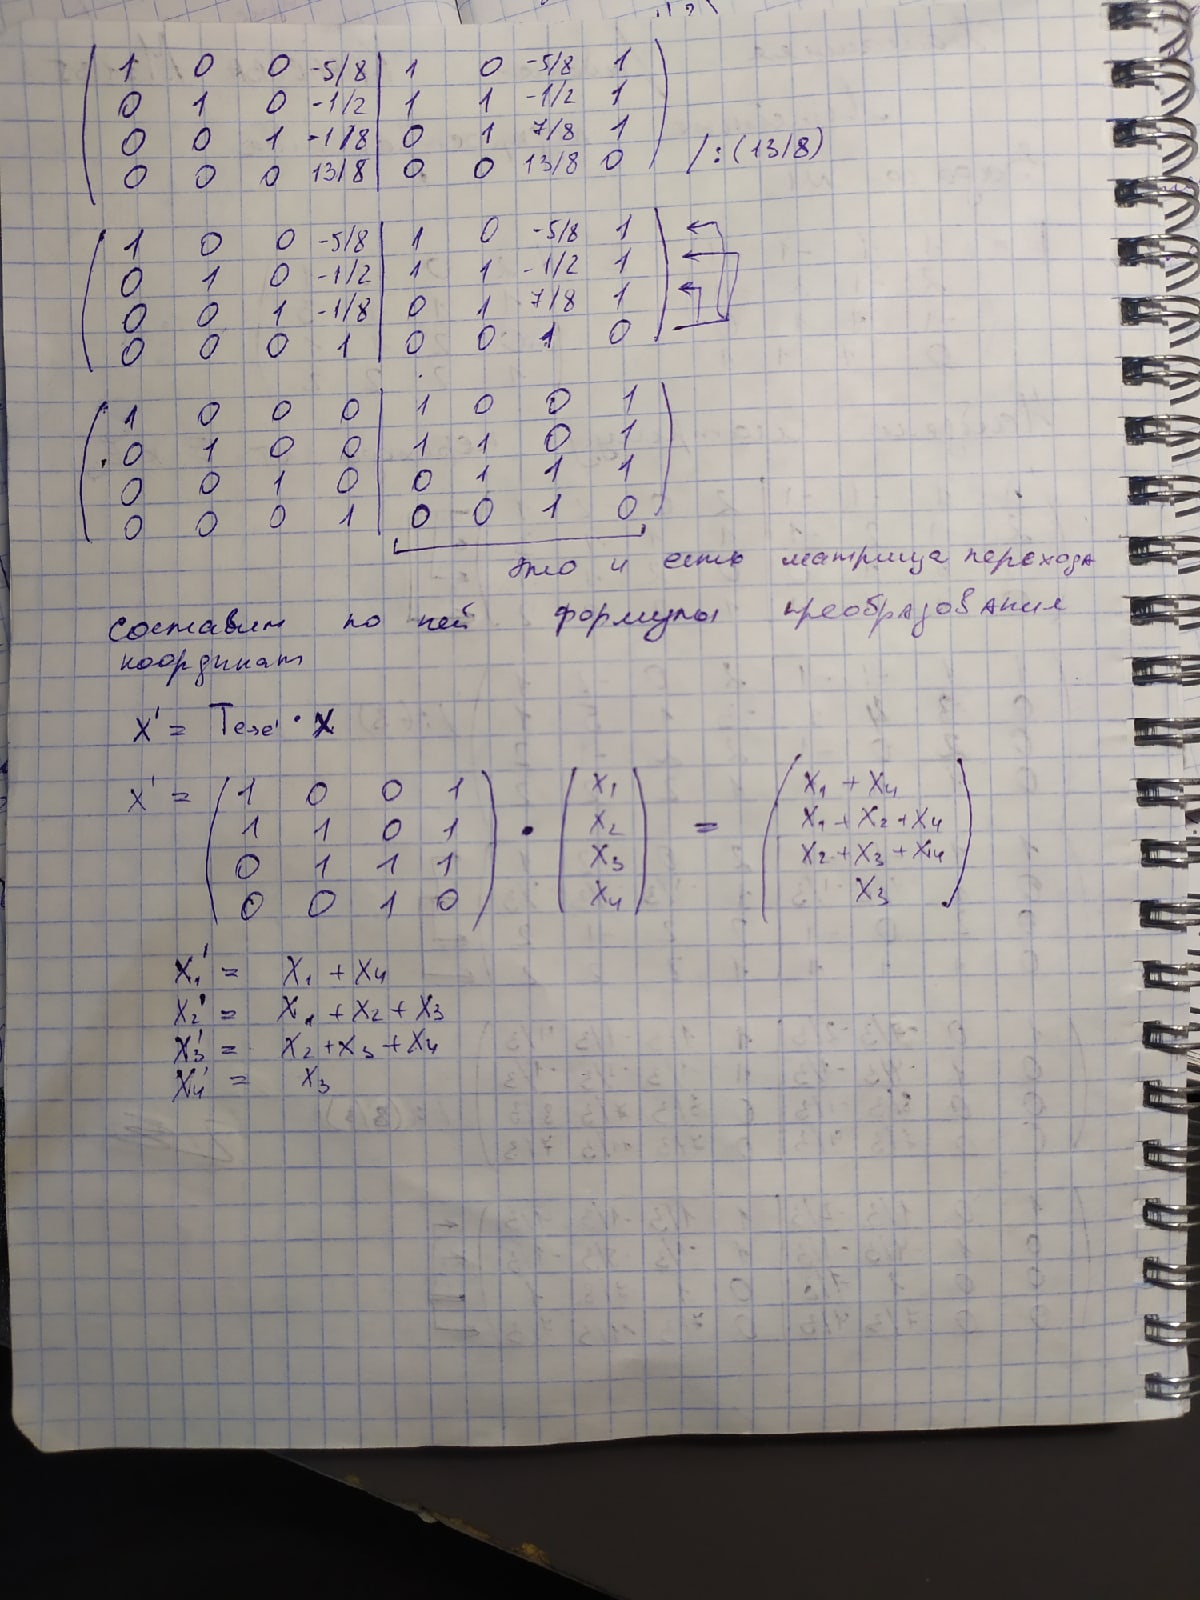 1 0 0 -5/8 | 1 0 -5/8 1
0 1 0 -1/2 | 1 1 -1/2 1
0 0 1 -1/8 | 0 1 7/8 1
0 0 0 13/8 | 0 0 13/8 0 /:(13/8)
1 0 0 -5/8 | 1 0 -5/8 1
0 1 0 -1/2 | 1 1 -1/2 1
0 0 1 -1/8 | 0 1 7/8 1
0 0 0 1 | 0 0 1 0
1 0 0 0 | 1 0 0 1
0 1 0 0 | 1 1 0 1
0 0 1 0 | 0 1 1 1
0 0 0 1 | 0 0 1 0
Это и есть матрица перехода
составим по ней формулы преобразования
координат
X' = Te→e' · X
X' = (1 0 0 1) · (X1) = (X1 + X4)
(1 1 0 1) (X2) (X1 + X2 + X4)
(0 1 1 1) (X3) (X2 + X3 + X4)
(0 0 1 0) (X4) (X3)
X1' = X1 + X4
X2' = X1 + X2 + X3
X3' = X2 + X3 + X4
X4' = X3